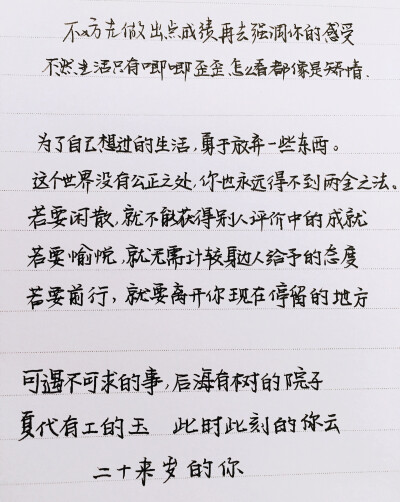 不妨先做出点成绩再去强调你的感受
不然生活只有唧唧歪歪 怎么看都像是矫情.
为了自己想过的生活,勇于放弃一些东西。
这个世界没有公正之处,你也永远得不到两全之法。
若要闲散,就不能获得别人评价中的成就
若要愉悦,就无需计较身边人给予的态度
若要前行,就要离开你现在停留的地方
可遇不可求的事,后海有树的院子
夏代有工的玉 此时此刻的你云
二十来岁的你